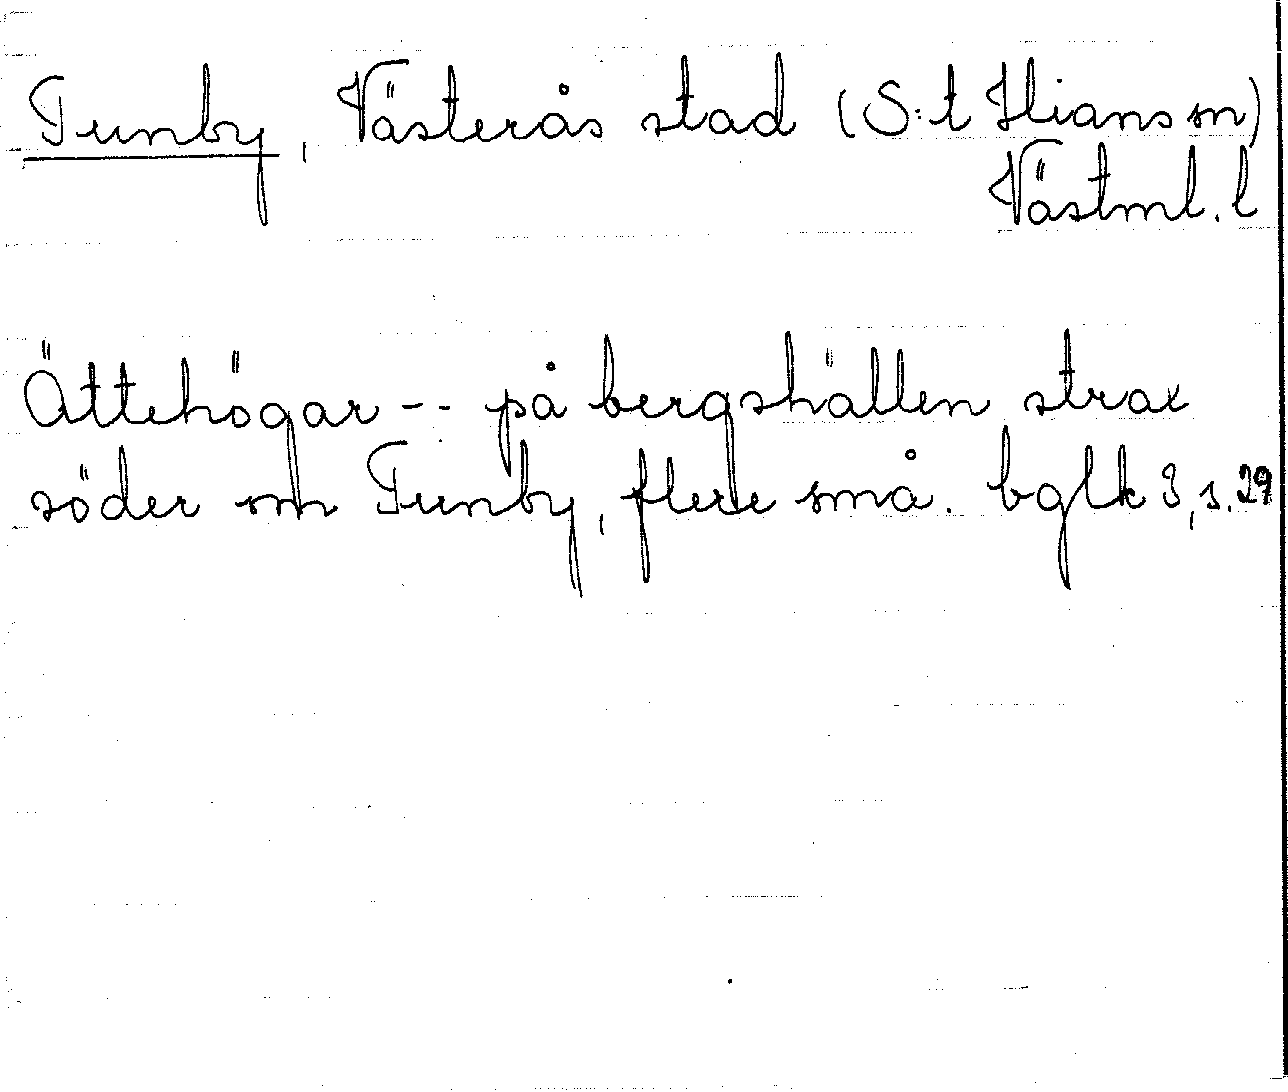 Tunby, Västerås stad (S:t Ilians sn)
Västml. l
Ättehögar -- på bergshällen strax
söder om Tunby, flere små. bglk 3, s. 29